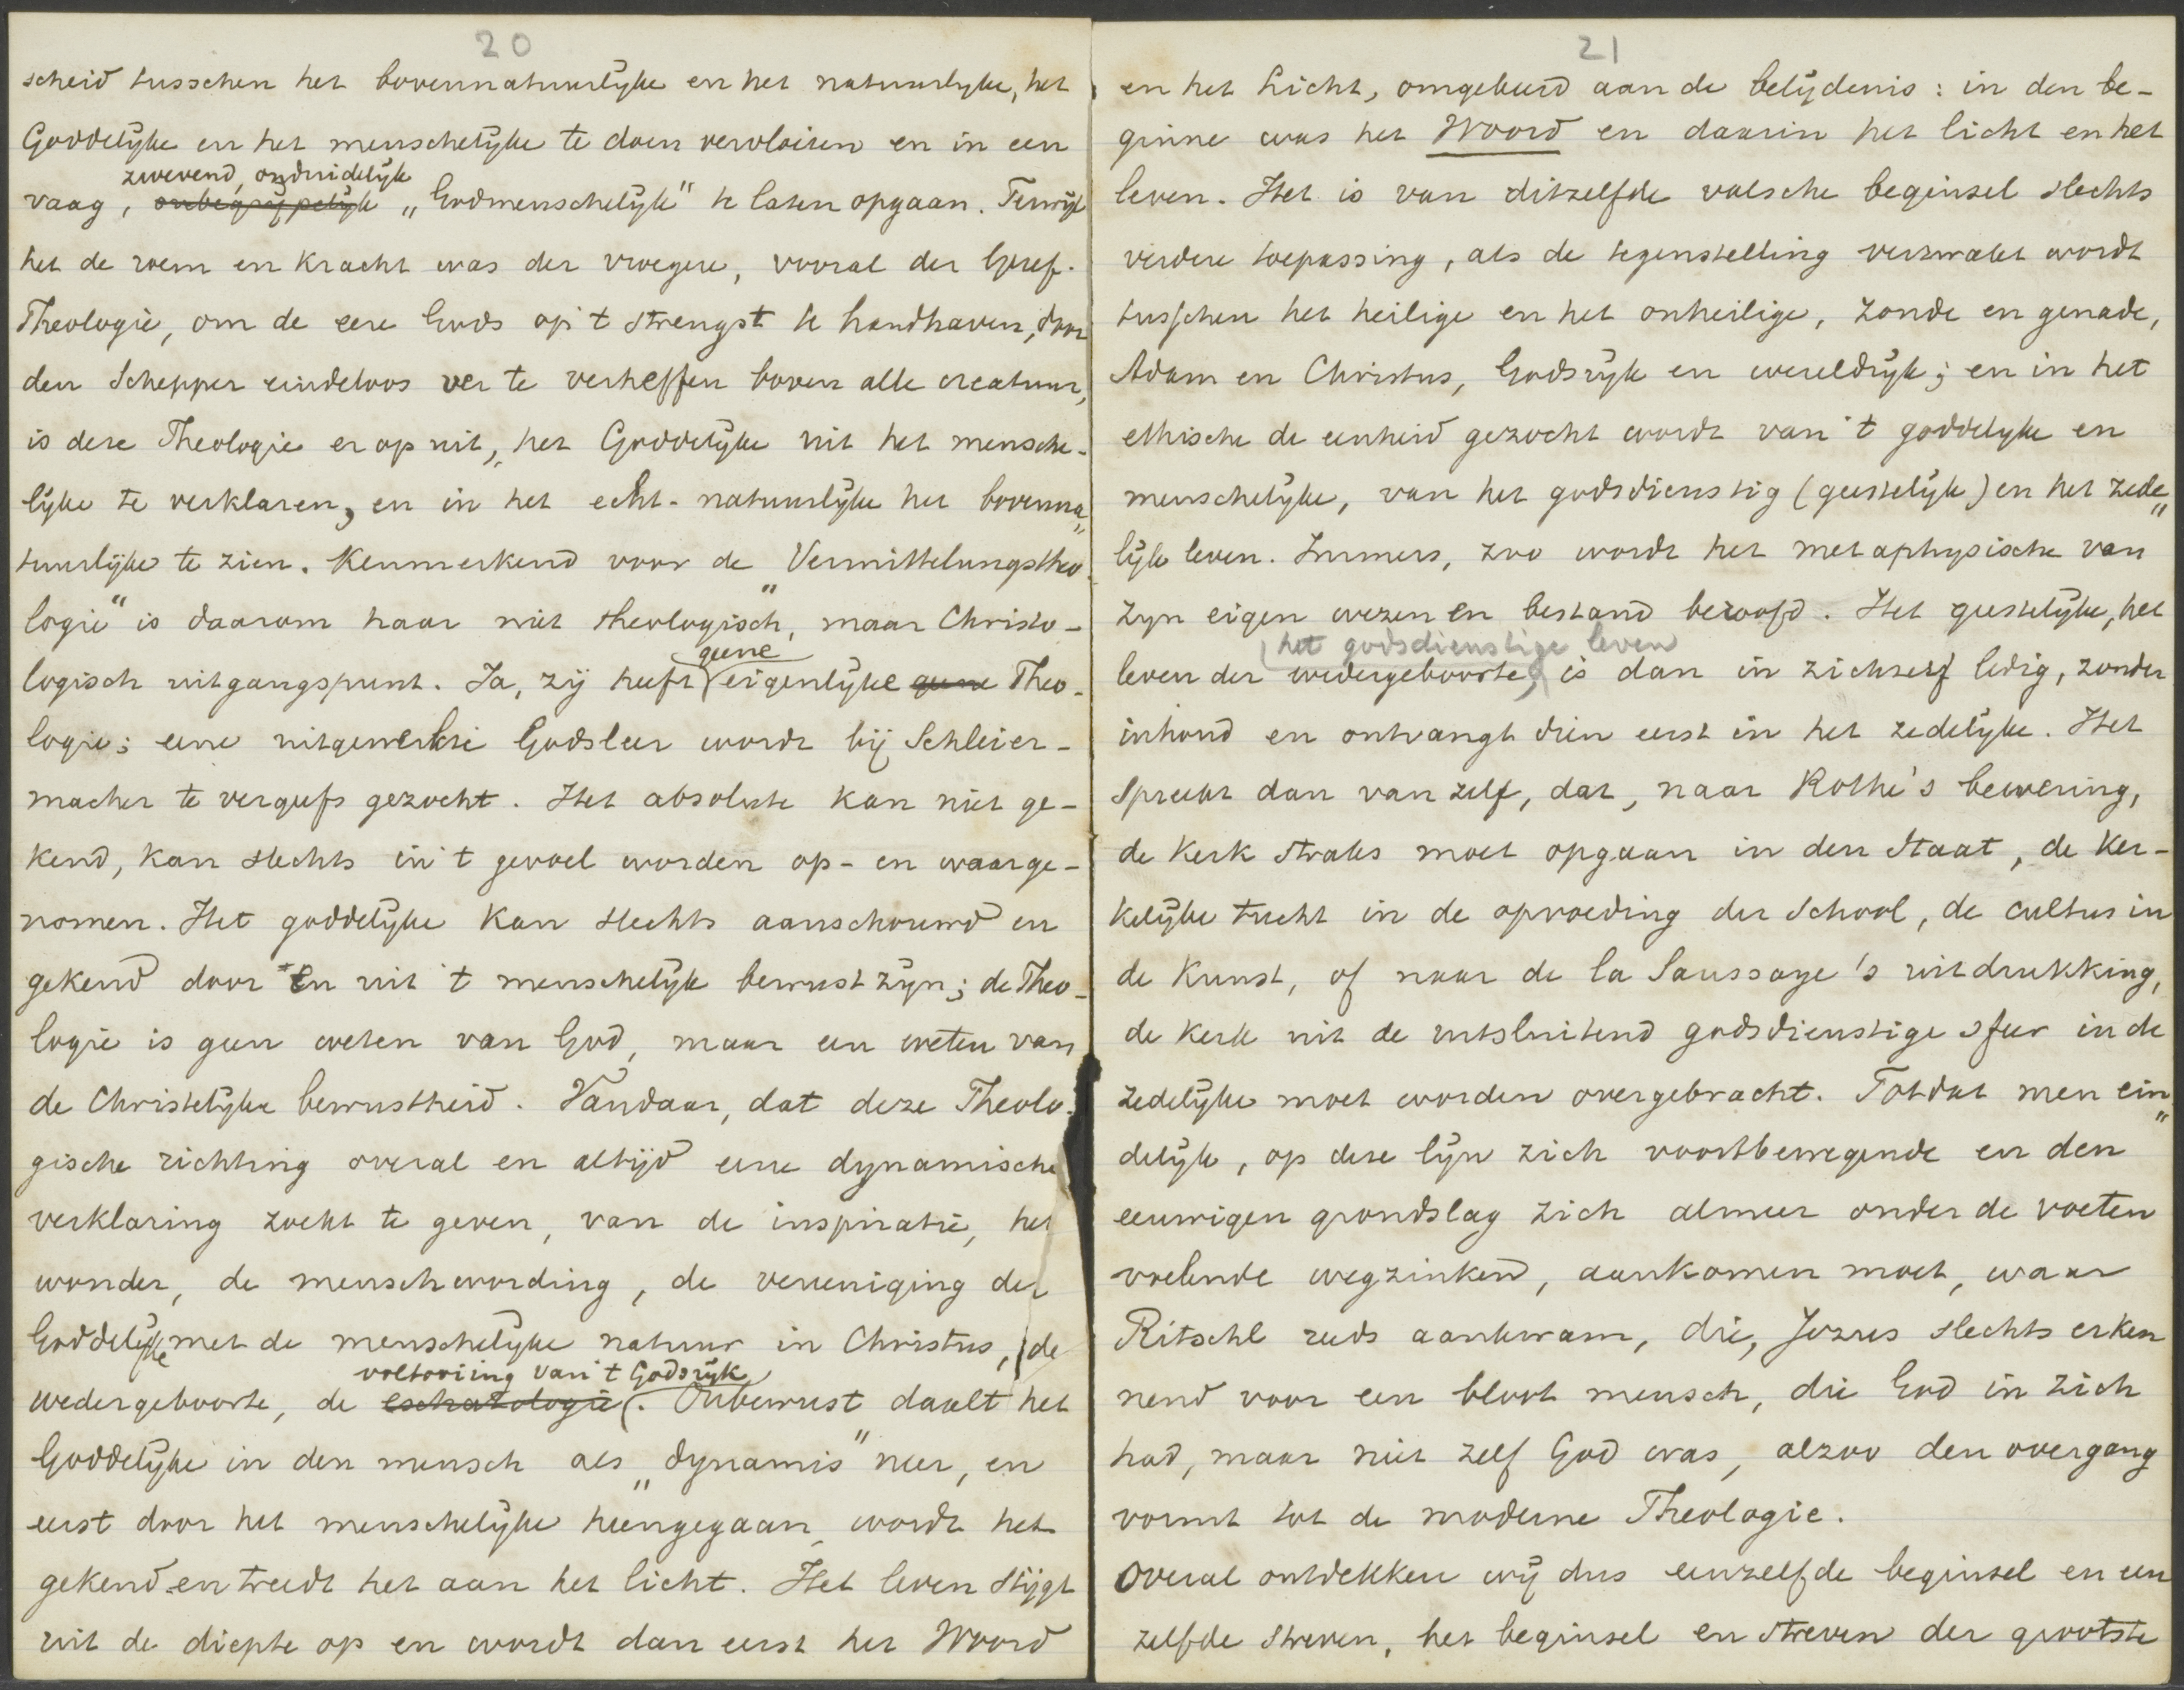 20
scheid tusschen het bovennatuurlyke en het natuurlyke, het
Goddelijke en het menschelijke te doen vervloeien en in een
zwevend, onduidelijk
vaag, onbegrijpelijk „Godmenschelijk" te laten opgaan. Terwijl
het de roem en kracht was der vroegere, vooral der Geref.
Theologie, om de eere Gods op 't strengst te handhaven, door
den Schepper eindeloos ver te verheffen boven alle creatuur,
is deze Theologie er op uit, het Goddelijke uit het mensche-
lijke te verklaren, en in het echt-natuurlijke het bovenna„
tuurlijke te zien. Kenmerkend voor de „Vermittelungstheo
logie" is daarom haar niet theologisch, maar Christo-
geene
logisch uitgangspunt. Ja, zij heeft eigenlijke geene Theo-
logie; eene uitgewerkte Godsleer wordt bij Schleier-
macher te vergeefs gezocht. Het absolute kan niet ge-
kend, kan slechts in 't gevoel worden op- en waarge-
nomen. Het goddelijke kan slechts aanschouwd en
gekend door en uit 't menschelijk bewustzijn; de Theo-
logie is geen weten van God, maar een weten van
de Christelijke bewustheid. Vandaar, dat deze Theolo-
gische richting overal en altijd eene dynamische
verklaring zocht te geven, van de inspiratie, het
wonder, de menschwording, de vereeniging der
Goddelijke met de menschelijke natuur in Christus, de
voltooiing van 't Godsrijk
wedergeboorte, de eschatologie. Onbewust daalt het
Goddelijke in den mensch als „dynamis" neer, en
eerst door het menschelijke heengegaan, wordt het
gekend en treedt het aan het licht. Het leven stijgt
uit de diepte op en wordt dan eerst het Woord
21
en het Licht, omgekeerd aan de belijdenis: in den be-
ginne was het Woord en daarin het licht en het
leven. Het is van ditzelfde valsche beginsel slechts
verdere toepassing, als de tegenstelling verzwakt wordt
tusschen het heilige en het onheilige, zonde en genade,
Adam en Christus, Godsrijk en wereldrijk; en in het
ethische de eenheid gezocht wordt van 't goddelyke en
menschelijke, van het godsdienstig (geestelijk) en het zede„
lijk leven. Immers, zoo wordt het metaphysische van
zyn eigen wezen en bestand beroofd. Het geestelijke, het
het godsdienstige leven
leven der wedergeboorte, is dan in zichzelf ledig, zonder
inhoud en ontvangt dien eerst in het zedelijke. Het
spreekt dan van zelf, dat, naar Rothe's bewering,
de Kerk straks moet opgaan in den Staat, de ker-
kelijke tucht in de opvoeding der School, de cultus in
de Kunst, of naar de la Saussaye's uitdrukking,
de kerk uit de uitsluitend godsdienstige sfeer in de
zedelijke moet worden overgebracht. Totdat men ein„
delijk, op deze lijn zich voortbewegende en den
eeuwigen grondslag zich almeer onder de voeten
voelende wegzinkend, aankomen moet, waar
Ritschl reeds aankwam, die, Jezus slechts erken
nend voor een bloot mensch, die God in zich
had, maar niet zelf God was, alzoo den overgang
vormt tot de moderne Theologie.
Overal ontdekken wij dus eenzelfde beginsel en een
zelfde streven, het beginsel en streven der grootste